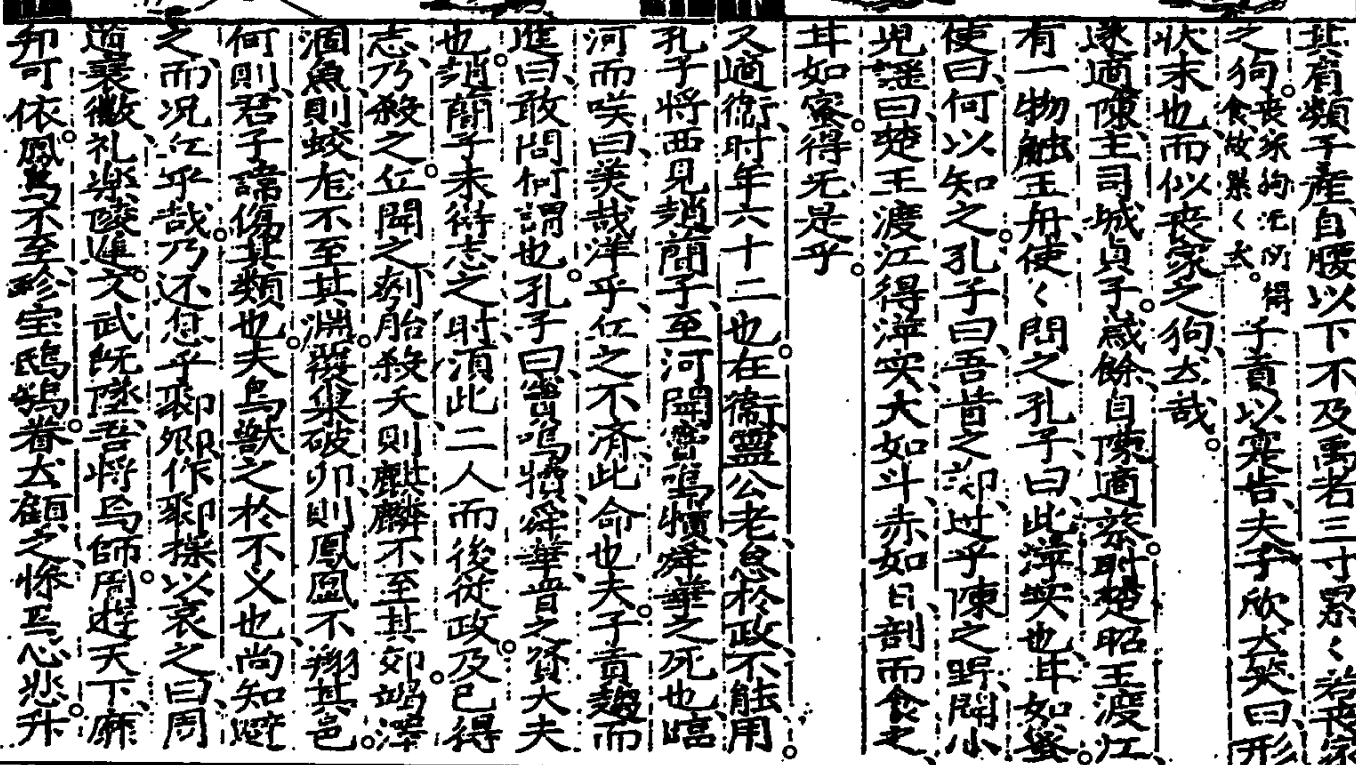 其有類子產自腰以下不及禹者三寸累〻若喪家
之狗喪家狗无所得食故累〻犬子貢以寔告夫子欣犬笑曰形
状末也而似喪家之狗犬哉
遂適陳主司城貞子歲餘自陳適蔡时楚昭王渡江
有一物触王舟使〻問之孔子曰此萍实也耳如蜜
使曰何以知之孔子曰吾昔之过乎陳之野聞小
児謡曰楚王渡江得萍实大如斗赤如日剖而食之
耳如蜜得无是乎
又適衛时年六十二也在衛灵公老怠於政不能用
孔子将西見趙簡子至河聞竇鳴犢舜華之死也臨
河而咲曰美哉洋乎丘之不濟此命也夫子貢趨而
進曰敢問何謂也孔子曰竇鳴犢舜華晋之贤大夫
也趙簡子未得志之时須此二人而後従政及已得
志乃殺之丘聞之刳胎殺夭則麒麟不至其郊竭澤
涸魚則蛟龙不至其淵覆巢破卵則鳳凰不翔其邑
何則君子諱傷其類也夫鳥獣之於不义也尚知避
之而况丘乎哉乃还息乎陬郷作陬操以哀之曰周
道衰微礼楽陵遅文武既墜吾将焉師周遊天下靡
邦可依鳳鳥不至珍宝鴟鴞眷犬顧之惨焉心悲升